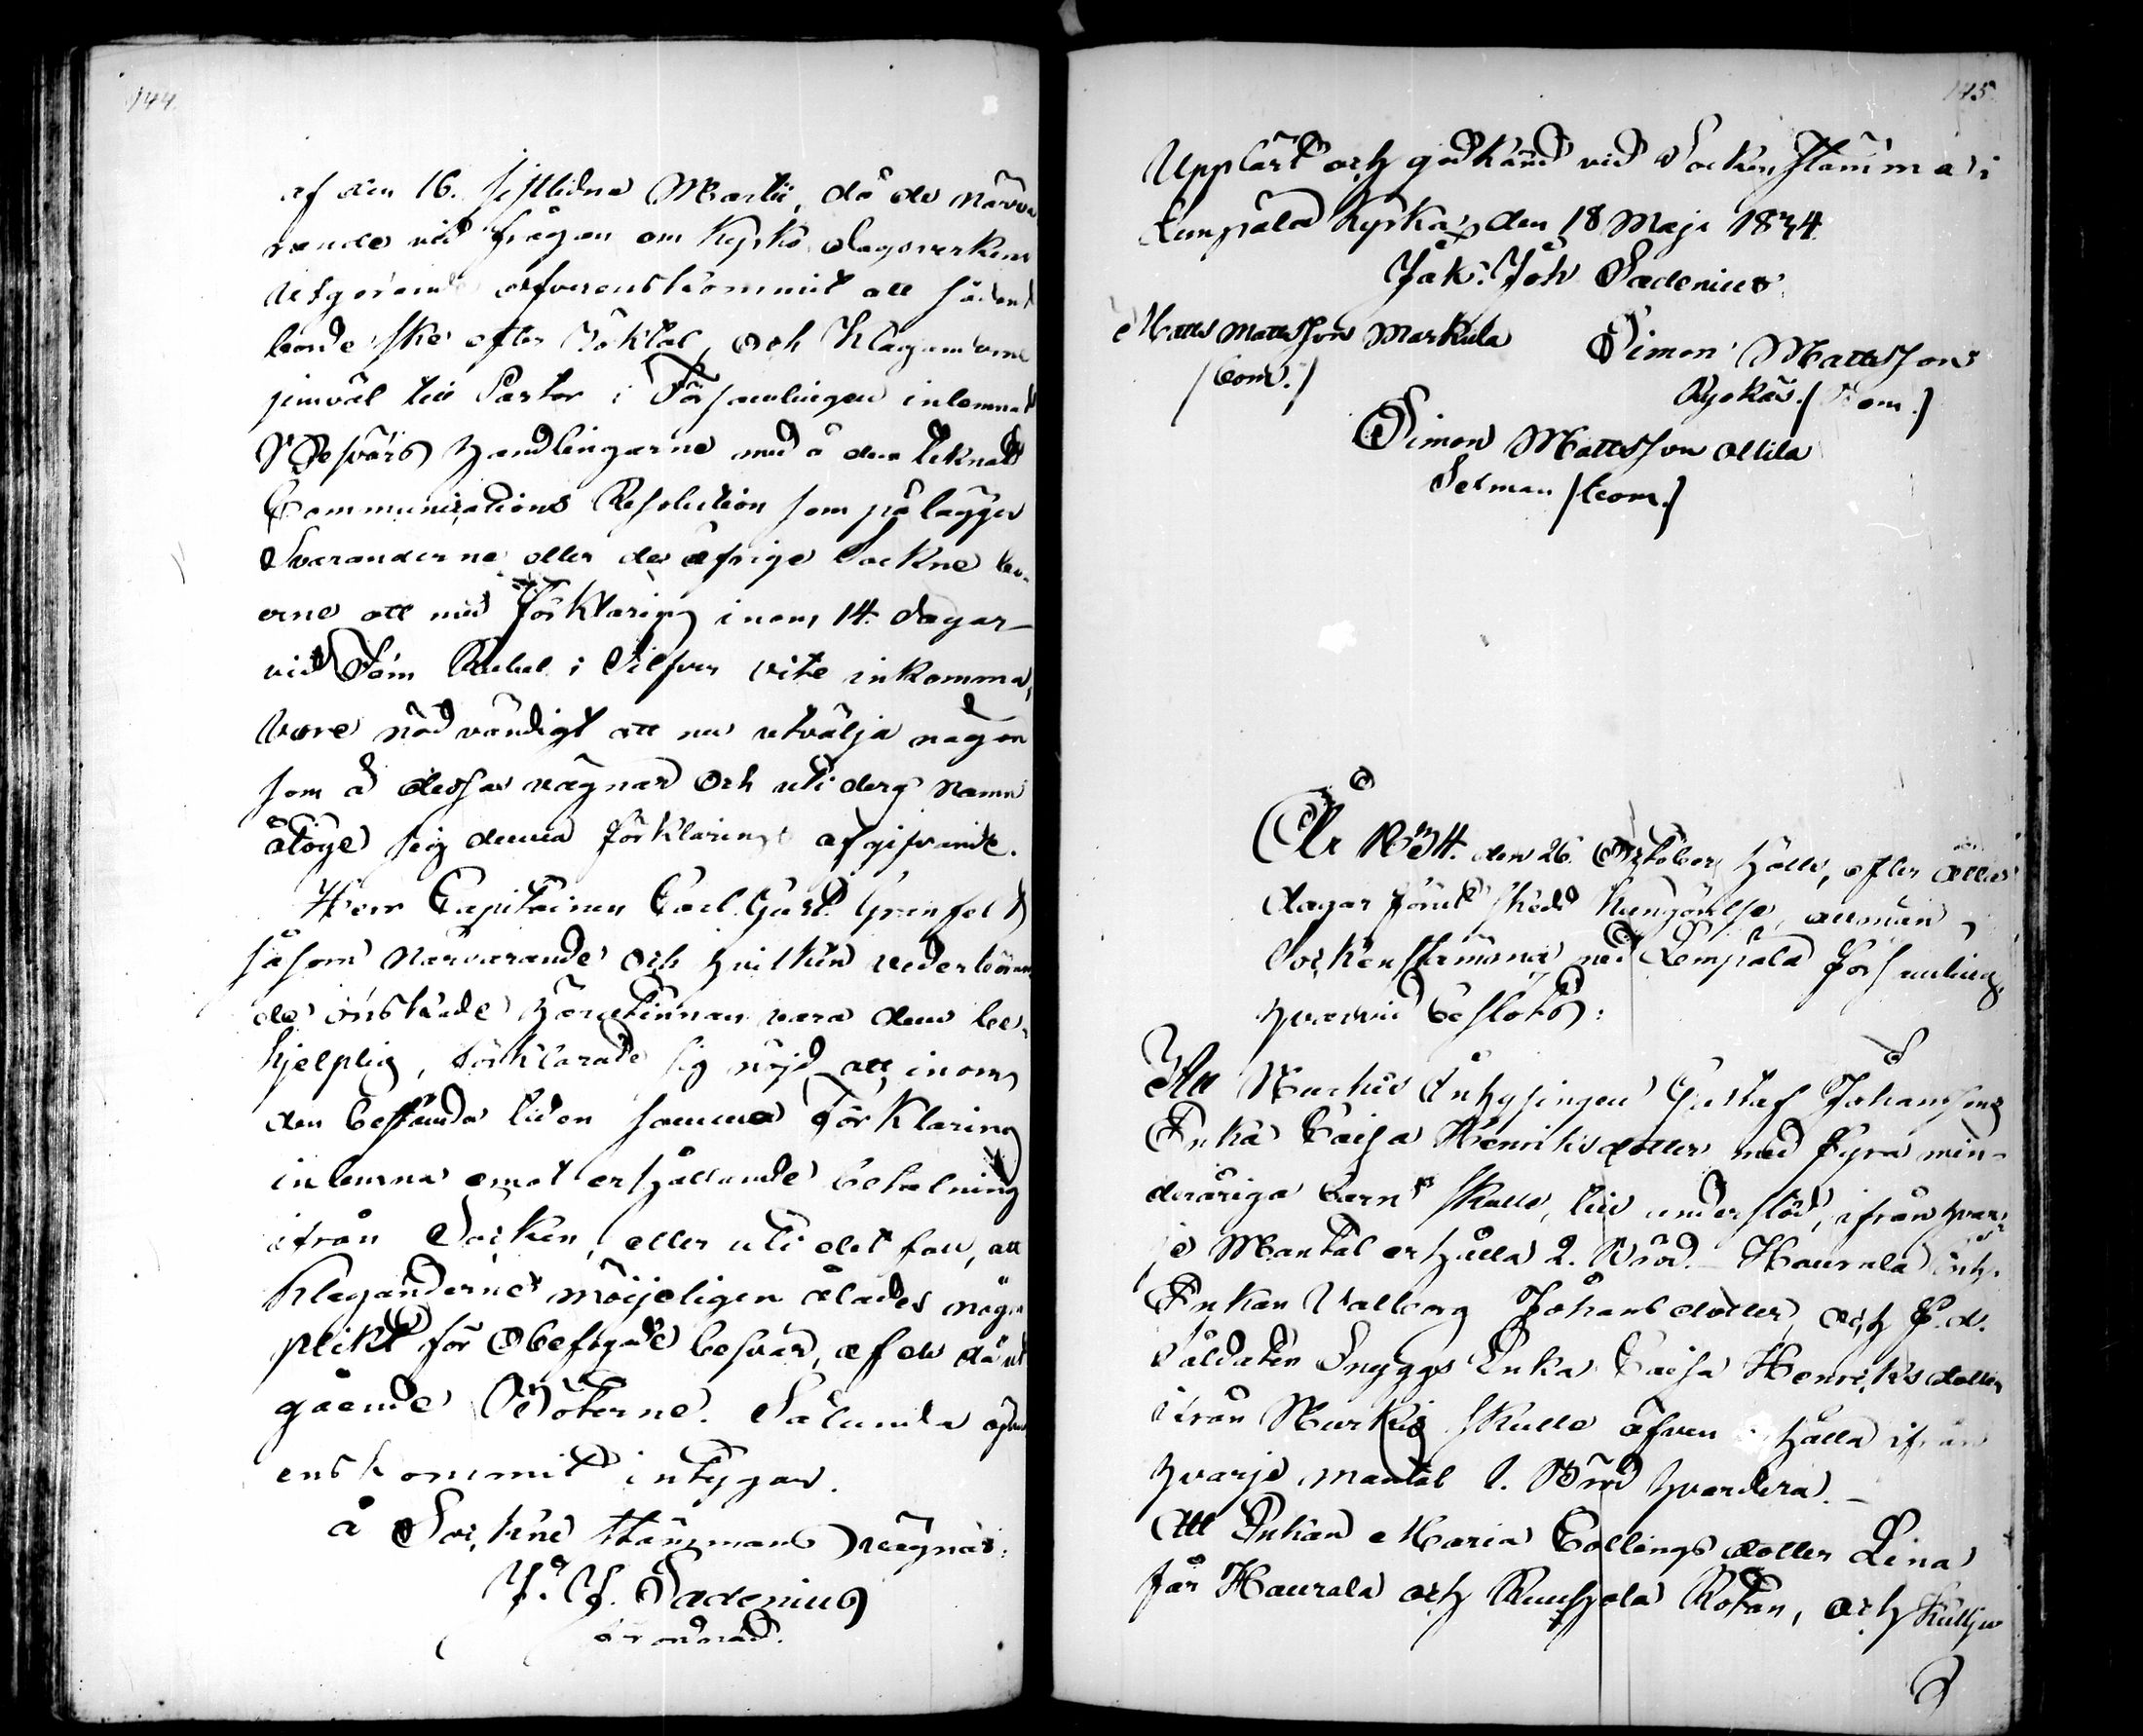 144.
af den 16. sistlidne Martii, då de närva
rande vid frågan om Kyrko dagsverkens
utgörande öfverenskommit att sådant
borde ske efter Röktal, och Klaganderne
jemväl till Pastor i Församlingen inlemnat
Besvärs Handlingarne med å dem teknad
Communications Resolution som pålägger
Svaranderne eller de öfrige Sockne bo-
erne att med Förklaring inom 14. dagar
vid Fem Rubel i Silfver vite inkomma,
vore nödvändigt att nu utvälja någon
som å dessas vägnar och uti deras namn
åtoge sig denna förklarings afgifvande.
Herr Capitainen Carl Gust. Granfelt
såsom närvarande och hvilken vederböran
de önskade härutinnan vara dem be-
hjelplig, förklarade sig nöjd att inom
den bestämda tiden samma Förklaring
inlemna emot erhållande betalning
ifrån Socken, eller uti det fall, att
Klaganderne möijeligen ålades någon
plikt för obefogade besvär, af de då ut
gående Böterne. Sålunda öfver
enskommit intygar.
å Sockne stämmans vägnar:
J. J. Sadenius
145.
Uppläst och godkänd vid Sockenstämma i
Lempälä Kyrka, den 18 Maji 1834.
Jak. Joh Sadenius.
Matts Mattsson Markula Simon Mattsson
(bom.)
Ryökäs. (bom.)
Simon Mattsson Ollila
Sexman (bom.)
År 1834. den 26. October hölls, efter åtta
dagar förut skedd kungörelse, allmän
Sockenstämma med Lempälä församling,
hvarvid beslöts:
Att Kurkis Inhysingen Gustaf Johanssons
Enka Caisa Henriksdotter med fyra min-
deråriga barn skulle, till understöd, ifrån hvar-
je Mantal erhålla 2. Bröd. Haurala Inh.
Enkan Valborg Johansdotter, och F. d.
Soldaten Snyggs Enka Caisa Henriksdotter
ifrån Kurkis skulle äfven erhålla ifrån
hvarje mantal 1. Bröd hvardera.
Att Enkan Maria Collings dotter Lina
får Haurala och Kuusjela Rotan, och